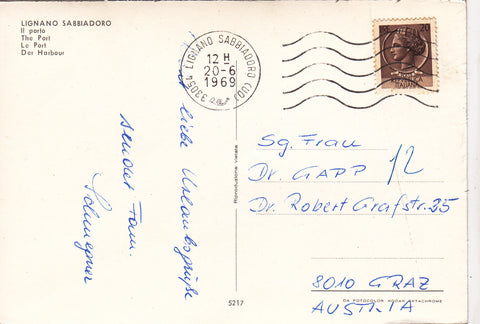 LIGNANO SABBIADORO
Il porto
The Port
Le Port
Der Harbour
33054 LIGNANO SABBIADORO (UD)
12 H
20-6
1969
20
ITALIANE
liebe Urlaubsgrüße
sendet Fam.
Sg. Frau
Dr. GAPP 12
Dr. Robert Grafstr. 25
8010 GRAZ
AUSTRIA
Riproduzione vietata
5217
DA FOTOCOLOR KODAK EKTACHROME